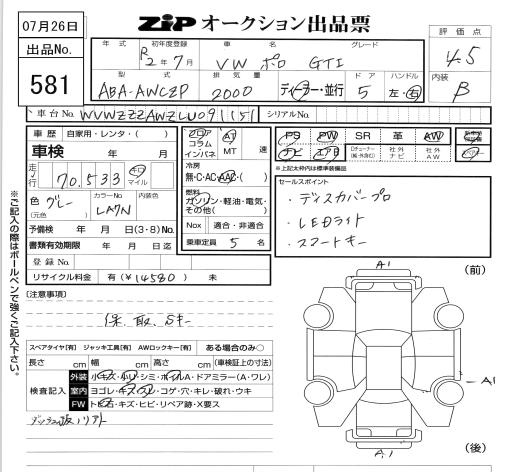 07月26日
ZIP オークション出品票
出品No.
581
年式 初年度登録 車名 グレード
R2年7月 VW ポロ GTI
型式 排気量 ドア ハンドル
ABA-AWCZP 2000 ディーラー・並行 5 左・右
評価点
4.5
内装
B
車台No. WVWZZZAWZLU091151 シリアルNo.
車歴 自家用・レンタ・( )
車検 年 月
走行 70,533 キロ マイル
色 グレー
(元色 )
カラーNo LA7N
内装色
予備検 年 月 日(3・8)No.
書類有効期限 年 月 日迄
登録No.
リサイクル料金 有(¥14580) 未
フロア コラム インパネ
AT MT 速
冷房
無・C・AC・AAC・( )
燃料
ガソリン・軽油・電気・その他( )
Nox 適合・非適合
乗車定員 5 名
PS PW SR 革 AW
ナビ エアB 社外ナビ 社外AW
※上記太枠内は標準装備品
セールスポイント
・ディスカバープロ
・LEDライト
・スマートキー
※ご記入の際はボールペンで強くご記入下さい。
[注意事項]
保、取、Sキー
スペアタイヤ[有] ジャッキ工具[有] AWロックキー[有] ある場合のみ○
長さ cm 幅 cm 高さ cm (車検証上の寸法)
検査記入
外装 小キズ・小凹・シミ・ホイルA・ドアミラー(A・ワレ)
室内 ヨゴレ・キズ・スレ・コゲ・穴・キレ・破れ・ウキ
FW トビ石・キズ・ヒビ・リペア跡・X要ス
A1
(前)
A1
(後)
A1